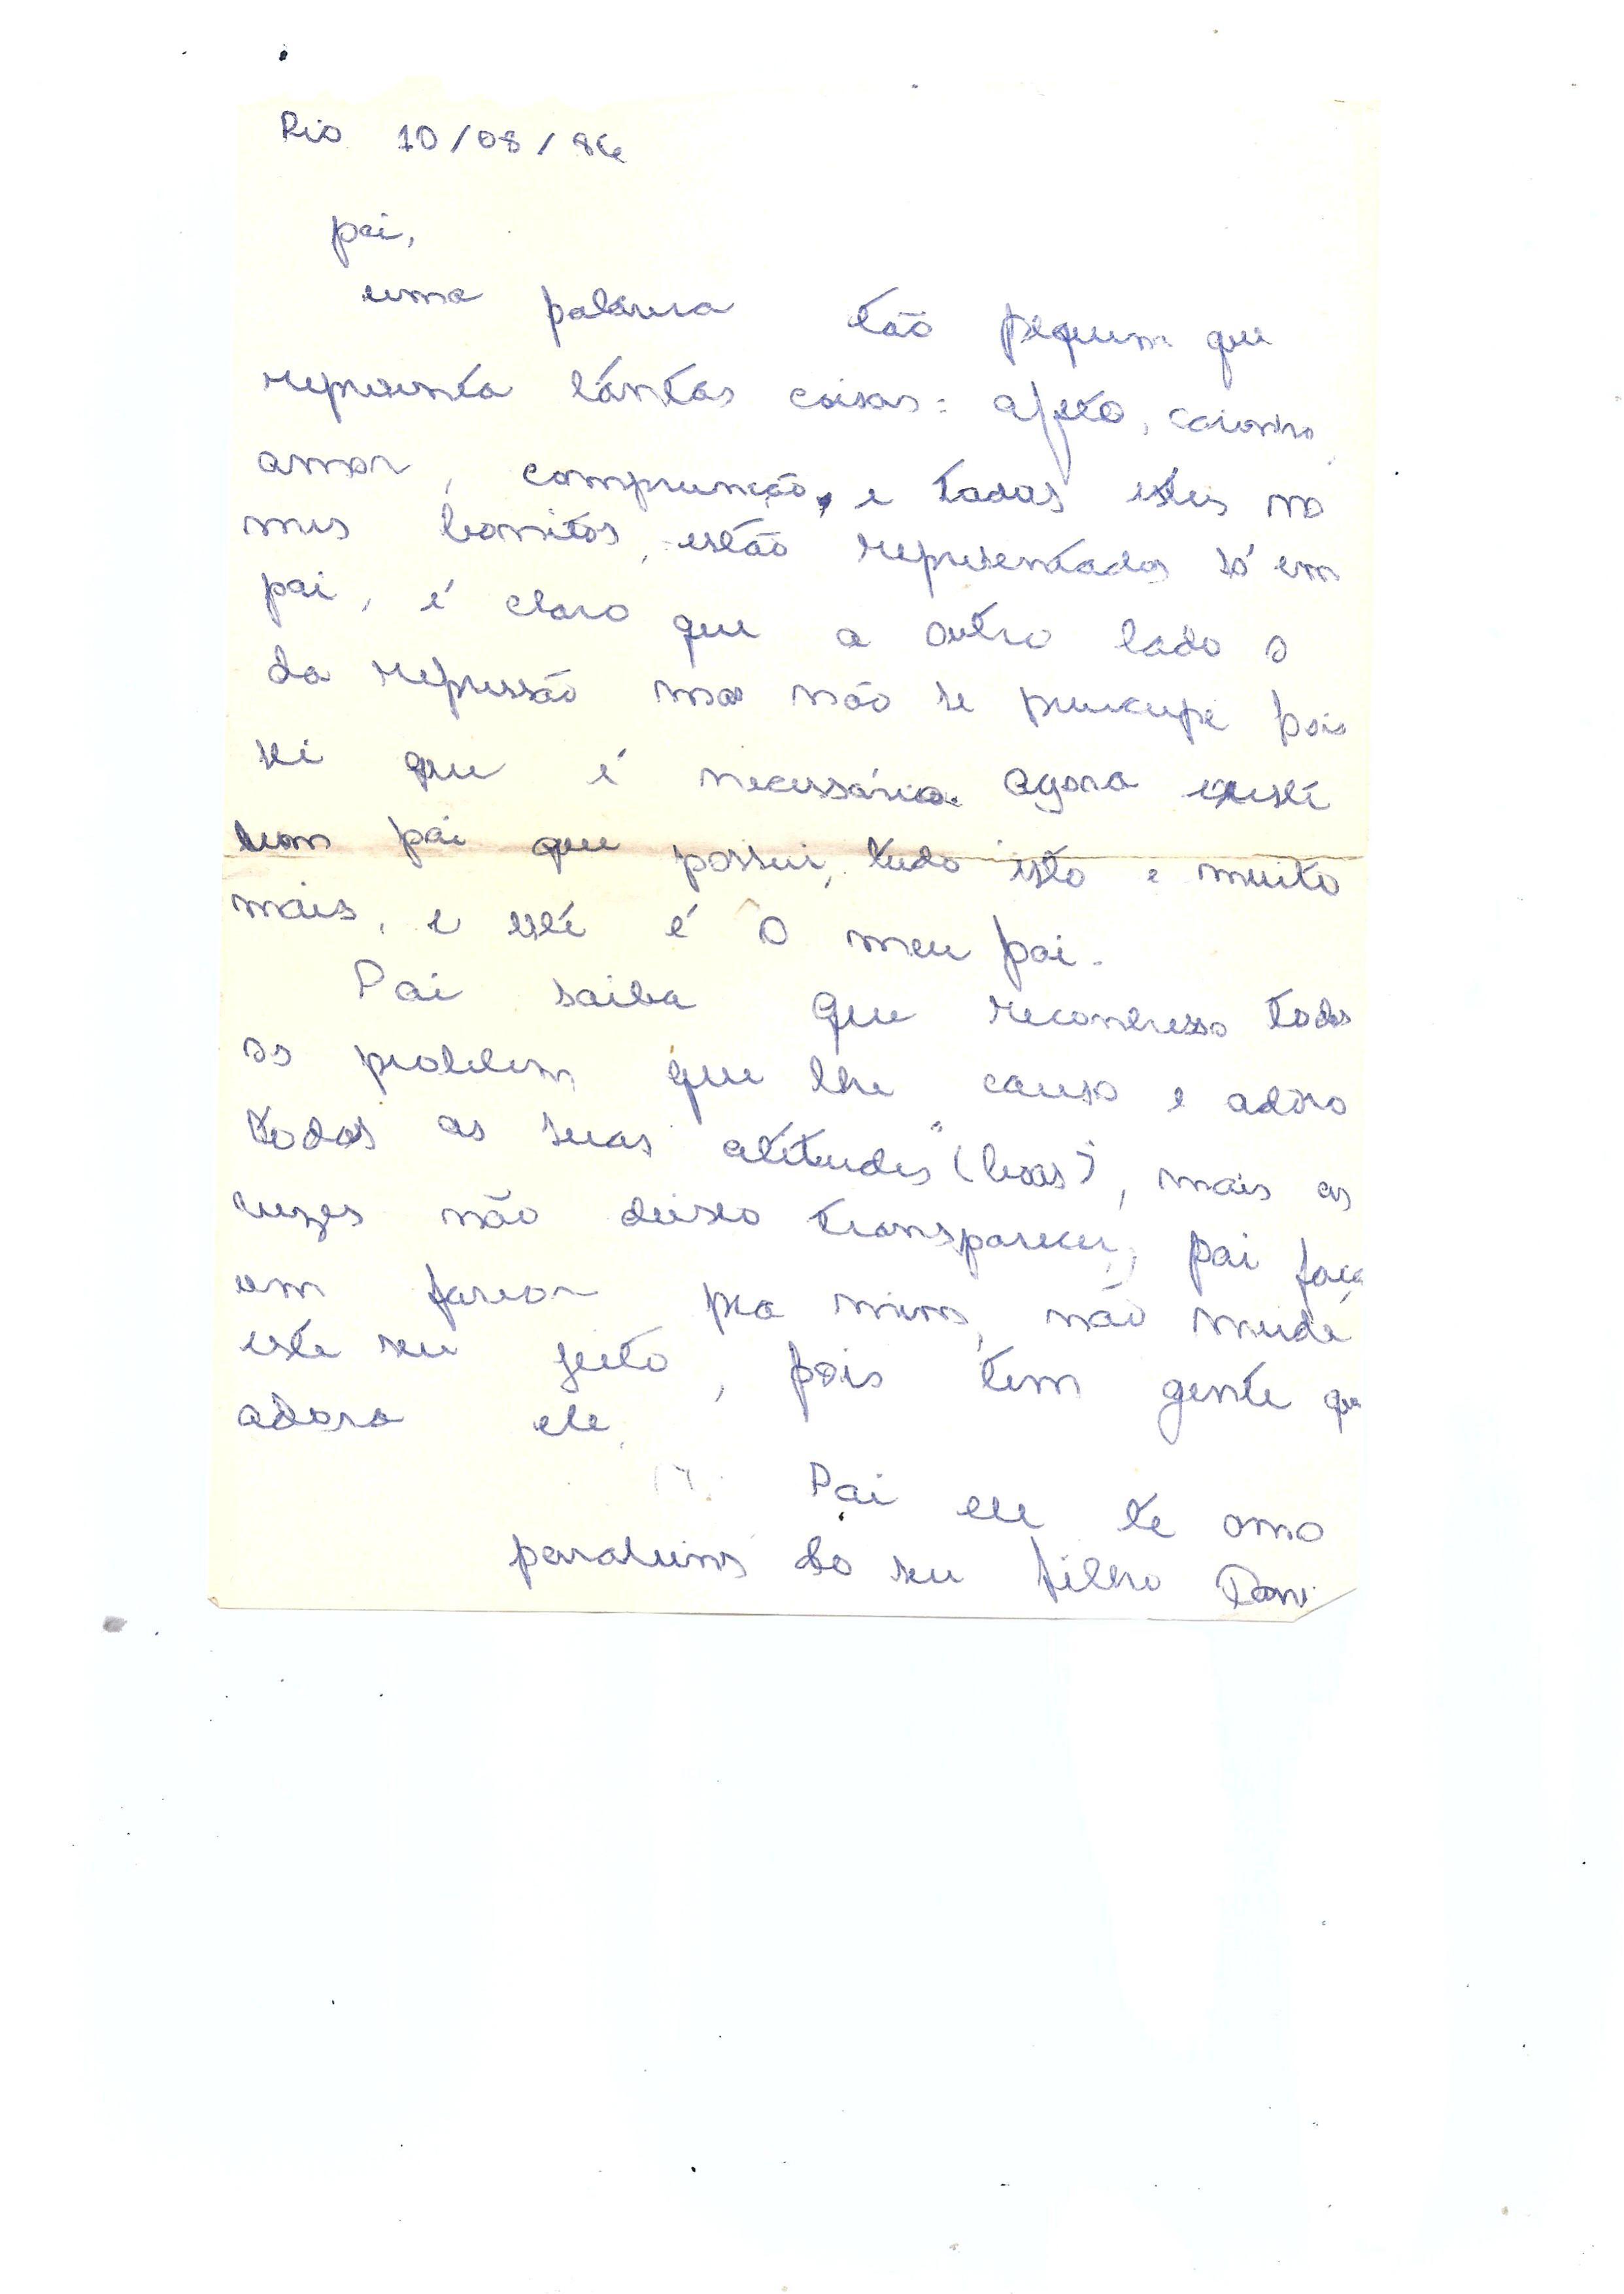 Rio 10/08/86
pai,
uma palavra tão pequen que
representa tántas coisas: afeto, carinho
amor, comprenção, e todos estes no
mes bonitos, estão representados só em
pai, é claro que a outro lado o
da repressão mas não se preucupe pois
sei que é necessário. agora existe
um pai que possui, tudo isto e muito
mais, e este é o meu pai.
Pai saiba que reconhesso todos
os problem que lhe causo e adoro
todas as suas atitudes "(boas)", mais as
vezes não deixo transparecer, pai faça
um favor pra mim, não mude
este seu jeito, pois tem gente que
adora ele.
Pai eu te amo
parabéns do seu filho